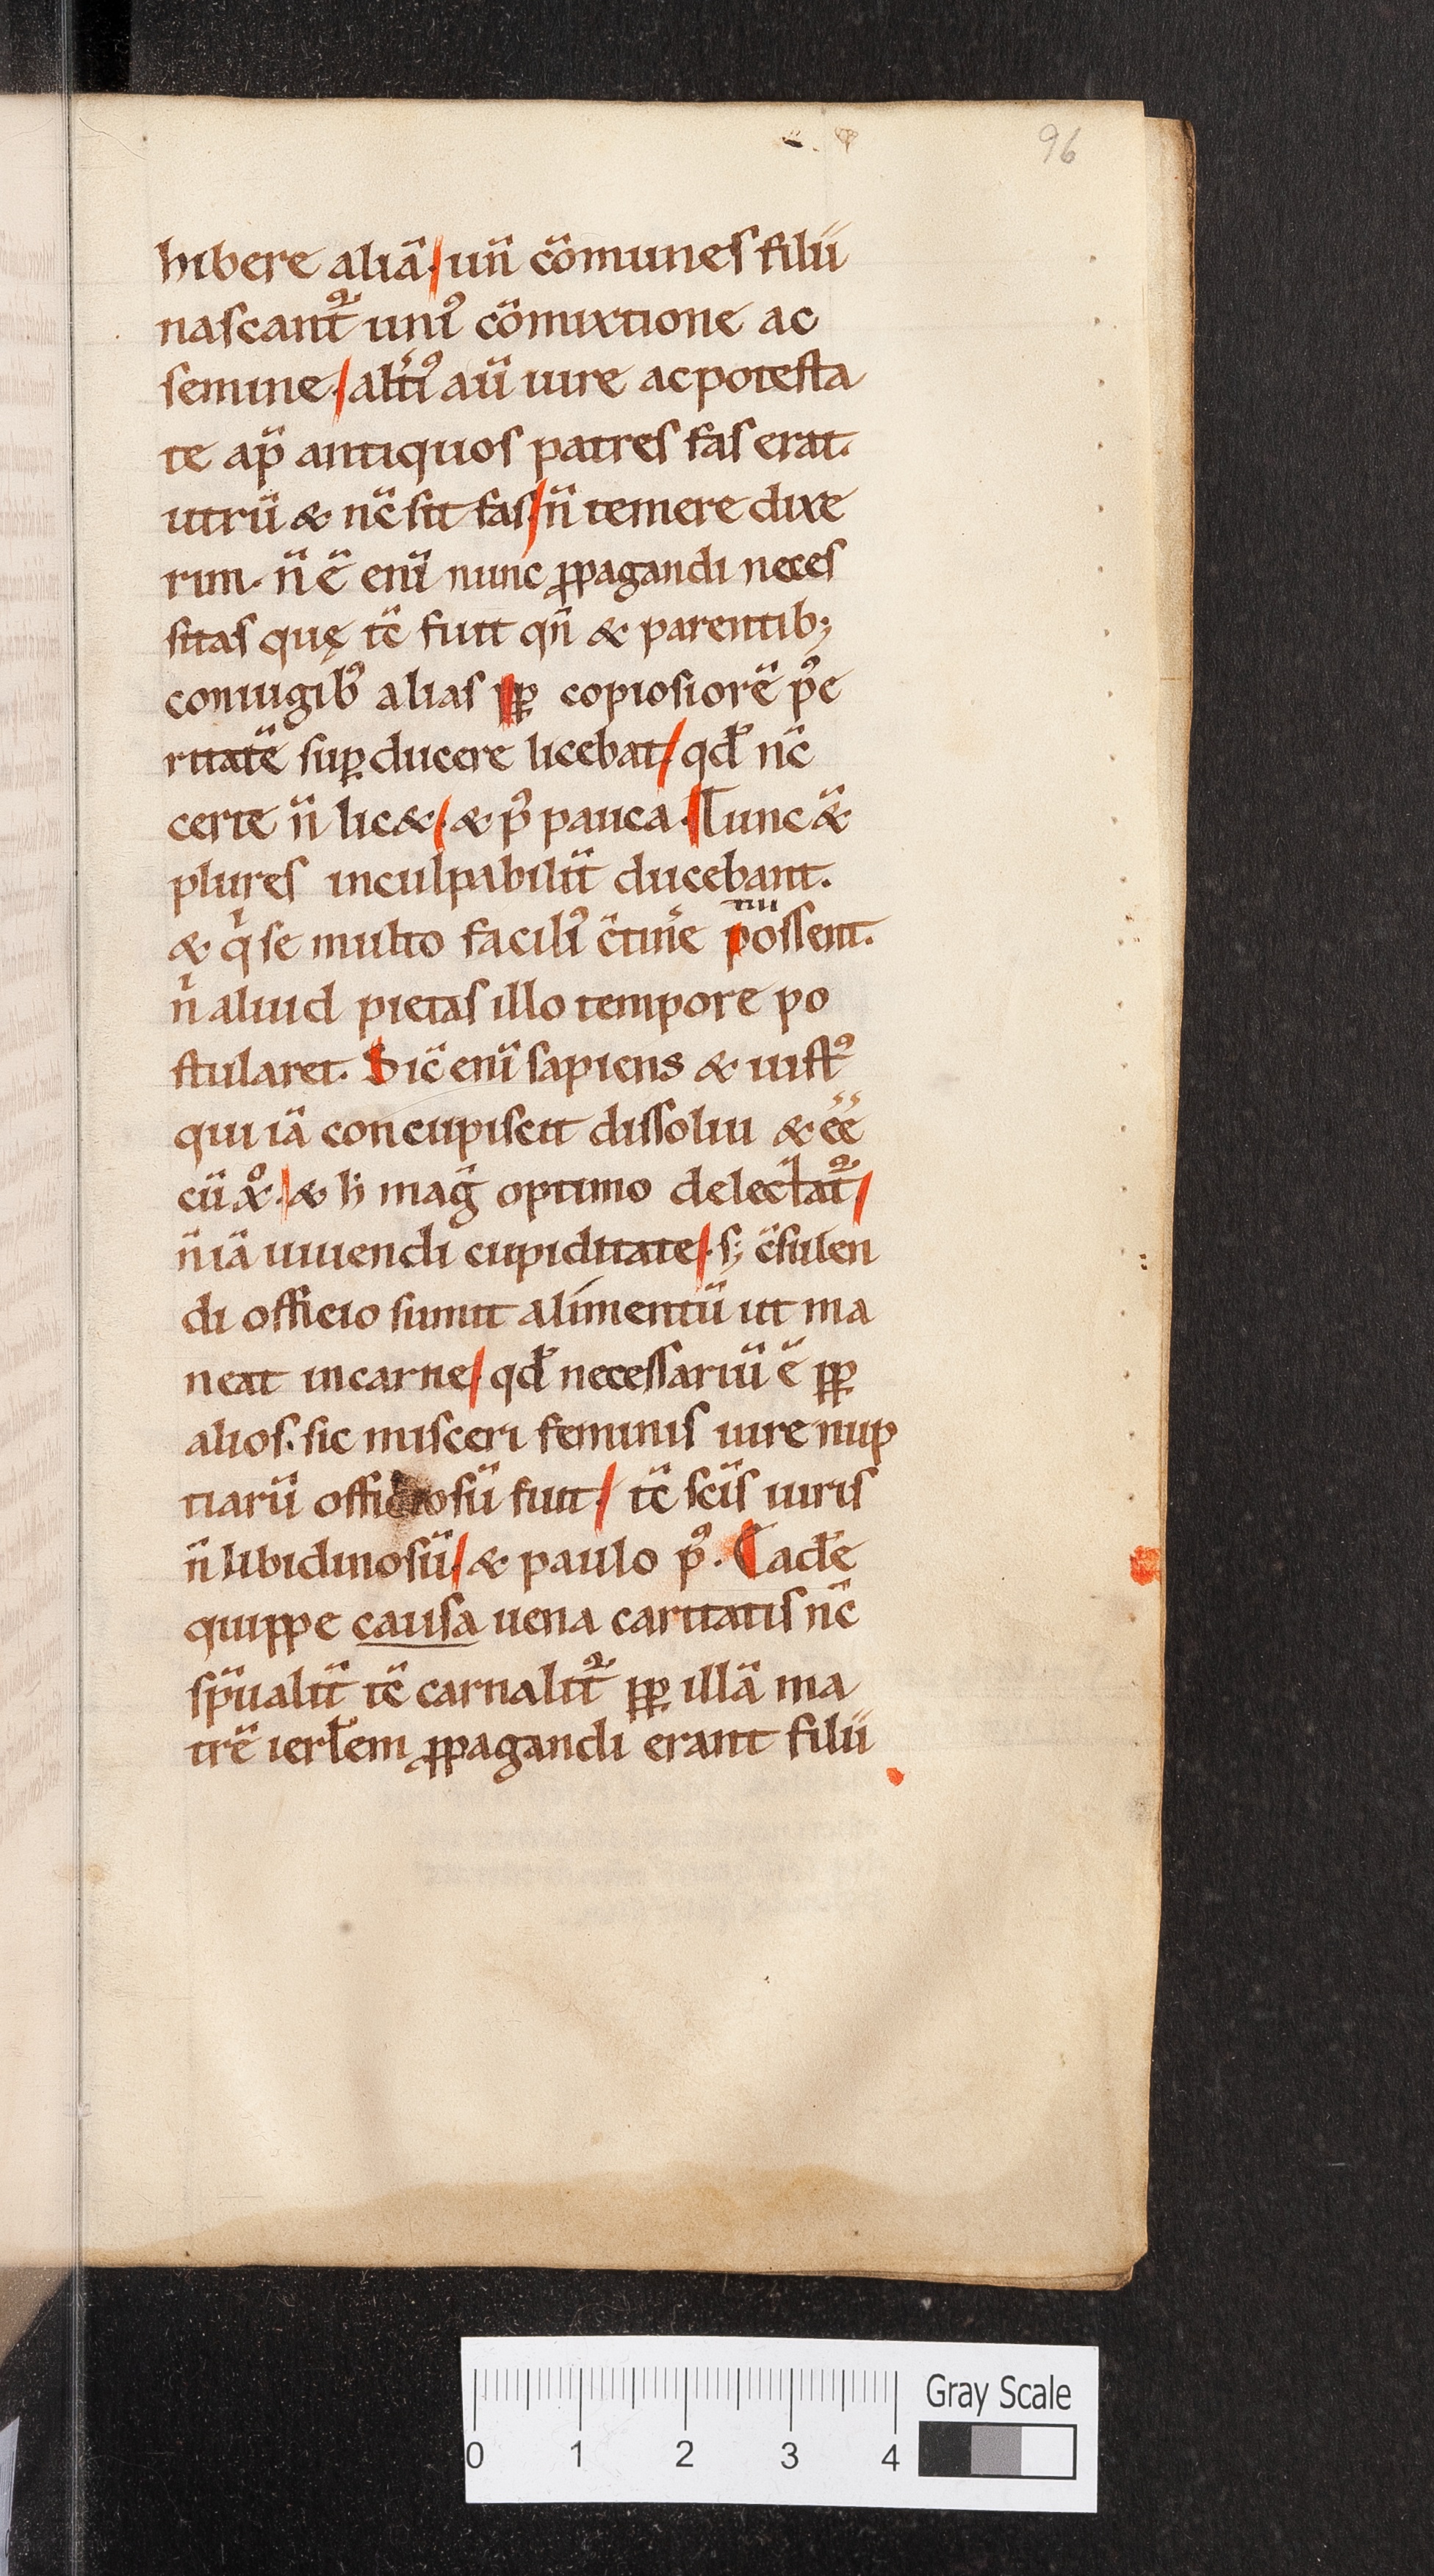 96
hibere aliā. un̄ cōmunes filii
nascant᷑ uniꝰ cōmixtione ac
semine. alt̄iꝰ aū iure ac potesta
te ap̄ antiquos patres fas erat.
utrū & nc̄ sit fas. n̄ temere dixe
rim. n̄ ē enī nunc ꝓpagandi neces
sitas quę tc̄ fuit qn̄ & parentib;
coniugibꝰ alias ꝓp copiosiorē pꝰe
ritatē suꝑducere licebat. qđ nc̄
certe n̄ lic&. & pꝰ pauca. Tunc &̄
plures inculpabilit̄ ducebant.
& qͥ se multo faciliꝰ c̄tin̄e possent.
nͥ aliud pietas illo tempore po
stularet. Sic̄ enī sapiens & iustꝰ
qui iā concupiscit dissolui & ēe
cū xͦ. & h̄ mag̃ optimo delectat᷑.
n̄ iā uiuendi cupiditate. s; c̄sulen
di officio sumit alimentū ut ma
neat in carne. qđ necessariū ē ꝓp
alios. sic misceri feminis iure nup
tiarū officiosū fuit. tc̄ sc̄is uiris
n̄ libidinosū. & paulo pꝰ. Eade
quippe causa uena caritatis nc̄
sp̄ualit̄ tc̄ carnalit᷑ ꝓp illā ma
trē ierłem ꝓpagandi erant filii
0 1 2 3 4 Gray Scale